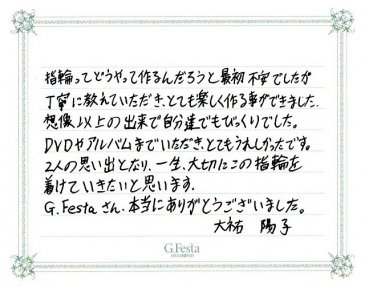 指輪ってどうやって作るんだろうと最初不安でしたが
丁寧に教えていただき、とても楽しく作る事ができました。
想像以上の出来で自分達でもびっくりでした。
DVDやアルバムまでいただき、とてもうれしかったです。
2人の思い出となり、一生、大切にこの指輪を
着けていきたいと思います。
G.Festaさん、本当にありがとうございました。
大祐 陽子
G.Festa